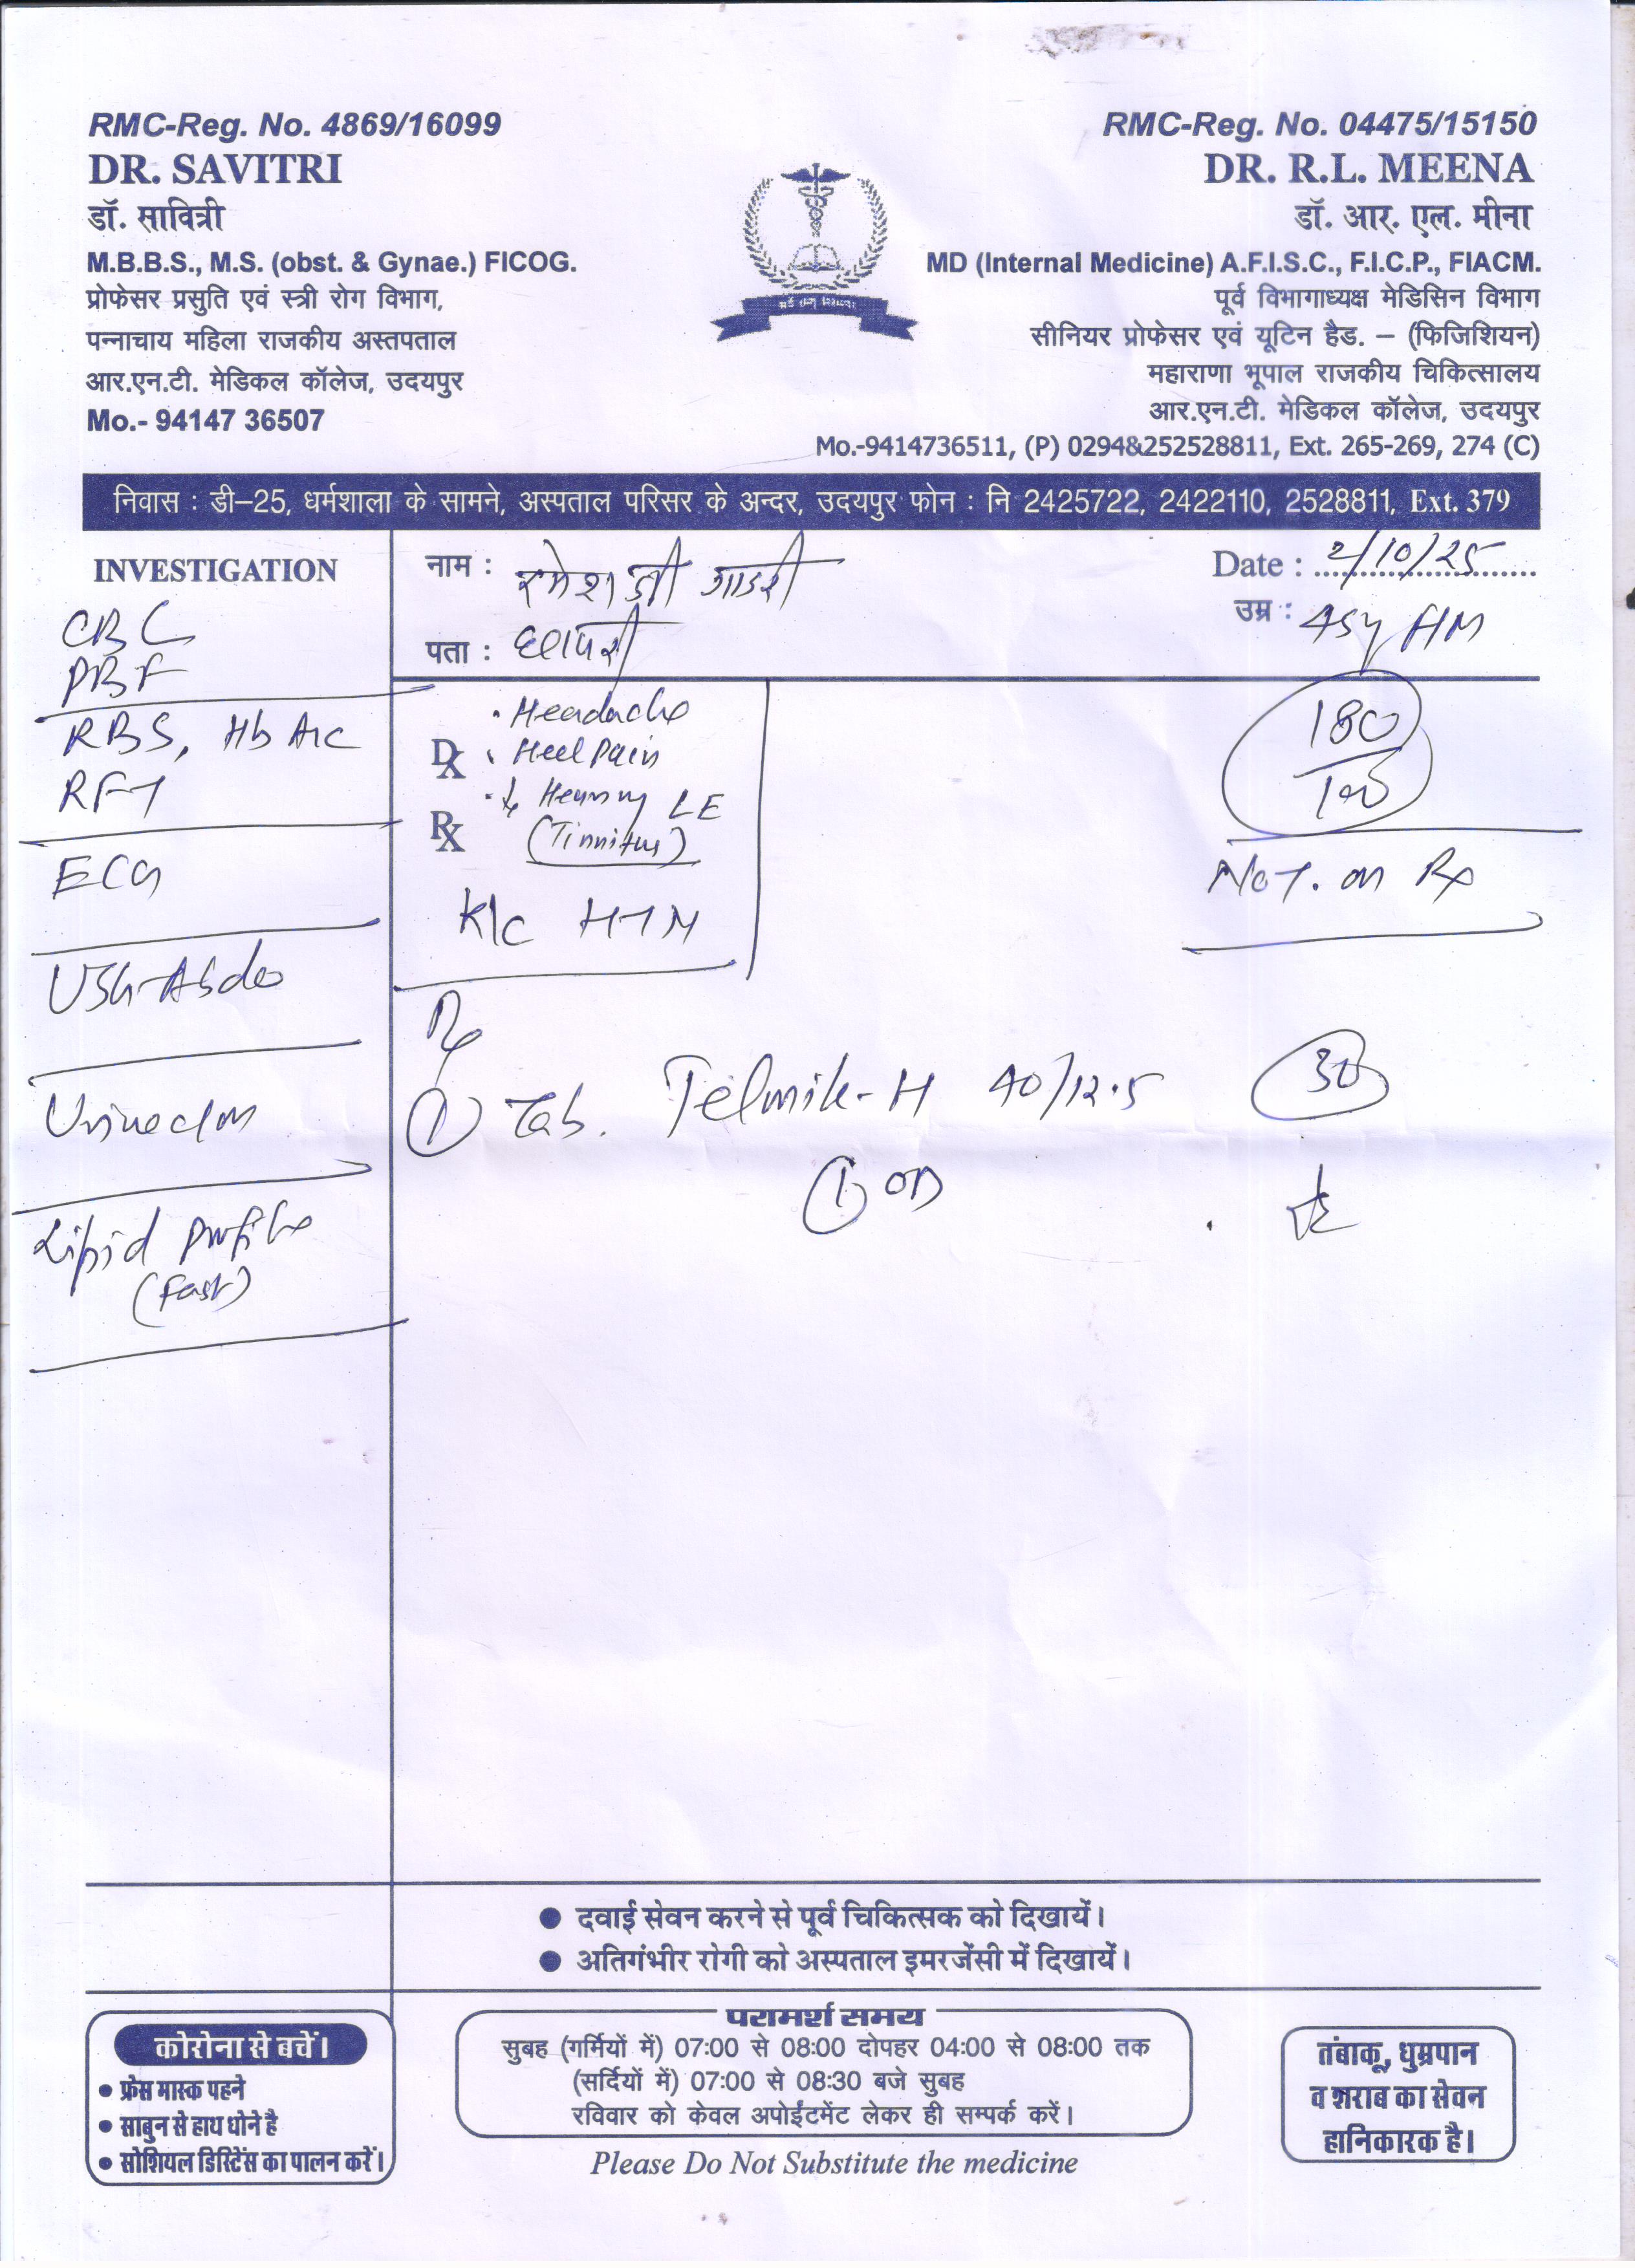 RMC-Reg. No. 4869/16099
DR. SAVITRI
डॉ. सावित्री
M.B.B.S., M.S. (obst. & Gynae.) FICOG.
प्रोफेसर प्रसुति एवं स्त्री रोग विभाग,
पन्नाचाय महिला राजकीय अस्तपताल
आर.एन.टी. मेडिकल कॉलेज, उदयपुर
Mo.- 94147 36507
RMC-Reg. No. 04475/15150
DR. R.L. MEENA
डॉ. आर. एल. मीना
MD (Internal Medicine) A.F.I.S.C., F.I.C.P., FIACM.
पूर्व विभागाध्यक्ष मेडिसिन विभाग
सीनियर प्रोफेसर एवं यूटिन हैड. – (फिजिशियन)
महाराणा भूपाल राजकीय चिकित्सालय
आर.एन.टी. मेडिकल कॉलेज, उदयपुर
Mo.-9414736511, (P) 0294&252528811, Ext. 265-269, 274 (C)
निवास : डी–25, धर्मशाला के सामने, अस्पताल परिसर के अन्दर, उदयपुर फोन : नि 2425722, 2422110, 2528811, Ext. 379
INVESTIGATION
CBC
PBF
RBS, HbA1c
RFT
ECG
USG-Abdo
Lipid Profile
(Fast)
नाम : रमेश जी गाडरी
Date : 2/10/25
पता :
उम्र : 45y HM
• Headache
Dx • Heel Pain
• ↓ Hearing LE
Rx (Tinnitus)
K/c HTN
180
Not. on Rx
Rx
① Tab. Telmik-H 40/12.5 30
① OD
● दवाई सेवन करने से पूर्व चिकित्सक को दिखायें।
● अतिगंभीर रोगी को अस्पताल इमरजेंसी में दिखायें।
कोरोना से बचें।
● फ्रेस मास्क पहने
● साबुन से हाथ धोने है
● सोशियल डिस्टिेंस का पालन करें।
परामर्श समय
सुबह (गर्मियों में) 07:00 से 08:00 दोपहर 04:00 से 08:00 तक
(सर्दियों में) 07:00 से 08:30 बजे सुबह
रविवार को केवल अपोईंटमेंट लेकर ही सम्पर्क करें।
Please Do Not Substitute the medicine
तंबाकू, धुम्रपान
व शराब का सेवन
हानिकारक है।